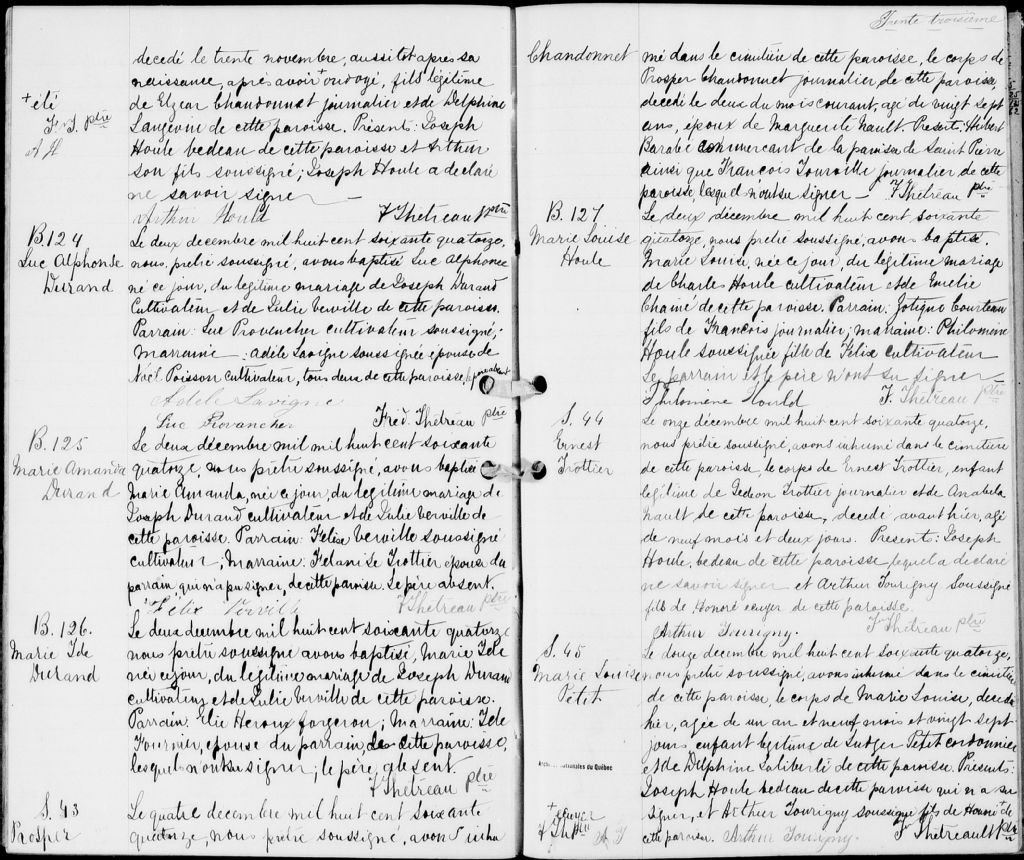 decedé le trente novembre, aussitot apres sa
naissance, après avoir + ondoyé, fils légitime
+ été
de Elzear Chandonnet journalier et de Delphine
F. T. ptre
Langevin de cette paroisse. Présent: Joseph
A H
Houle bedeau de cette paroisse et Arthur
son fils soussigné; Joseph Houle a declaré
ne savoir signer
Arthur Hould F Thétreau ptre
B. 124
Luc Alphonse
Durand
Le deux decembre mil huit cent soixante quatorze,
nous, pretre soussigné, avons baptisé Luc Alphonse
né ce jour, du légitime mariage de Joseph Durand
Cultivateur et de Julie Verville de cette paroisse.
Parrain: Luc Provancher cultivateur soussigné;
Marraine: Adèle Lavigne soussignée épouse de
Noël Poisson cultivateur, tous deux de cette paroisse, le pere absent
Adèle Lavigne
Luc Provancher Fréd. Thétreau ptre
B. 125
Marie Amanda
Durand
Le deux décembre mil mil huit cent soixante
quatorze, nous prêtre soussigné, avons baptisé
Marie Amanda, née ce jour, du legitime mariage de
Joseph Durand cultivateur et de Julie Verville de
cette paroisse. Parrain: Felix Verville soussigné
cultivateur; Marraine: Felanise Trottier épouse du
parrain, qui n'a pu signer, de cette paroisse. Le père absent.
Félix Verville F Thétreau ptre
B. 126.
Marie Ide
Durand
Le deux decembre mil huit cent soixante quatorze
nous pretre soussigné avons baptisé, Marie Ide
née ce jour, du légitime mariage de Joseph Durand
cultivateur et de Julie Verville de cette paroisse.
Parrain: Elie Heroux forgeron; Marraine: Ide
Fournier, epouse du parrain, de cette paroisse,
lesquels n'ont su signer; le père, absent.
F Thétreau ptre
S. 43
Prosper
Le quatre decembre mil huit cent soixante
quatorze, nous pretre soussigné, avons inhu
Trente troisième
Chandonnet
mé dans le cimitière de cette paroisse, le corps de
Prosper Chandonnet journalier de cette paroisse,
decedé le deux du mois courant, agé de vingt sept
ans, époux de Marguerite Nault. Present: Hubert
Barabé commercant de la paroisse de Saint Pierre
ainsi que François Tourville journalier de cette
paroisse, lesquels n'ont su signer — F Thétreau ptre
B. 127
Marie Louise
Houle
Le deux décembre mil huit cent soixante
quatorze, nous pretre soussigné, avons baptisé,
Marie Louise, née ce jour, du légitime mariage
de Charles Houle cultivateur et de Emelie
Chainé de cette paroisse. Parrain: Jotique Courteau
fils de Francois journalier; marraine: Philomène
Houle soussignée fille de Félix cultivateur
Le parrain et le père n'ont su signer
Philomène Hould F. Thétreau ptre
S. 44
Ernest
Trottier
Le onze décembre mil huit cent soixante quatorze,
nous prêtre soussigné, avons inhumé dans le cimitière
de cette paroisse, le corps de Ernest Trottier, enfant
légitime de Gedeon Trottier journalier et de Anabela
Nault de cette paroisse, decedé avant hier, agé
de neuf mois et deux jours. Presents: Joseph
Houle, bedeau de cette paroisse lequel a declaré
ne savoir signer et Arthur Tourigny Soussigné
fils de Honoré ecuyer de cette paroisse.
Arthur Tourigny. F Thétreau ptre
S. 45
Marie Louise
Petit
Le douze decembre mil huit cent soixante quatorze,
nous prêtre soussigné, avons inhumé dans le cimitière
de cette paroisse, le corps de Marie Louise, decedée
hier, agée de un an et neuf mois et vingt sept
jours enfant legitime de Ludger Petit cordonnier
et de Delphine Laliberté de cette paroisse. Presents:
Joseph Houle bedeau de cette paroisse qui n'a su
signer, et Arthur Tourigny soussigné fils de Honoré +
+ ecuyer
F Th ptre A T
cette paroisse. Arthur Tourigny. F Thétreault ptre
Archives nationales du Québec